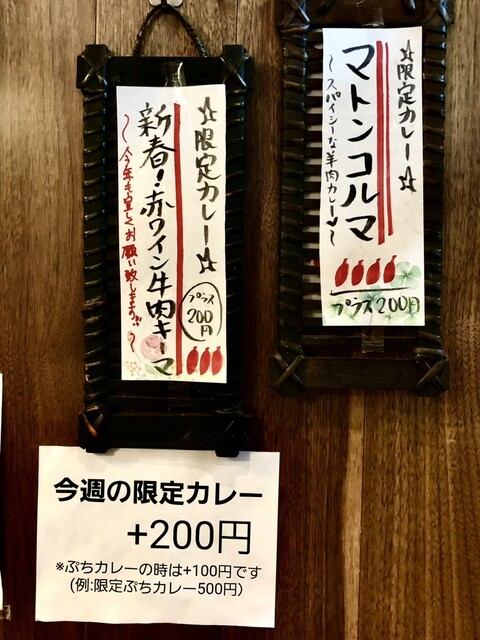 ☆限定カレー☆
マトンコルマ
～スパイシーな羊肉カレー♥～
プラス200円
☆限定カレー☆
プラス
200
円
新春!赤ワイン牛肉キーマ
～今年も宜しくお願い致します!!～
今週の限定カレー
+200円
※ぷちカレーの時は+100円です
(例:限定ぷちカレー500円)